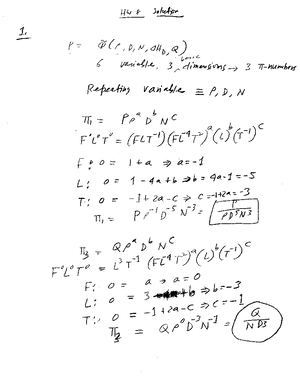 HW 8 Solution
1.
P = Φ(ρ, D, N, gHD, Q)
6 variable, 3 basic dimensions → 3 π-numbers
Repeating variable ≡ ρ, D, N
Π₁ = Pρᵃ Dᵇ Nᶜ
F⁰L⁰T⁰ = (FLT⁻¹)(FL⁻⁴T²)ᵃ(L)ᵇ(T⁻¹)ᶜ
F: 0 = 1+a ⇒ a=-1
L: 0 = 1-4a+b ⇒ b=4a-1=-5
T: 0 = -1+2a-c ⇒ c=-1+2a=-3
Π₁ = Pρ⁻¹D⁻⁵N⁻³ = P/ρD⁵N³
Π₂ = Qρᵃ Dᵇ Nᶜ
F⁰L⁰T⁰ = L³T⁻¹ (FL⁻⁴T²)ᵃ(L)ᵇ(T⁻¹)ᶜ
F: 0 = a → a=0
L: 0 = 3 ⇒ b=-3
T: 0 = -1+2a-c ⇒ c=-1
Π₂ = Qρ⁰D⁻³N⁻¹ = Q/ND³